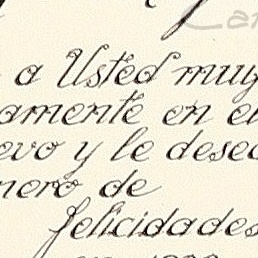 a Usted muy
amente en el
evo y le desea
nero de
felicidades